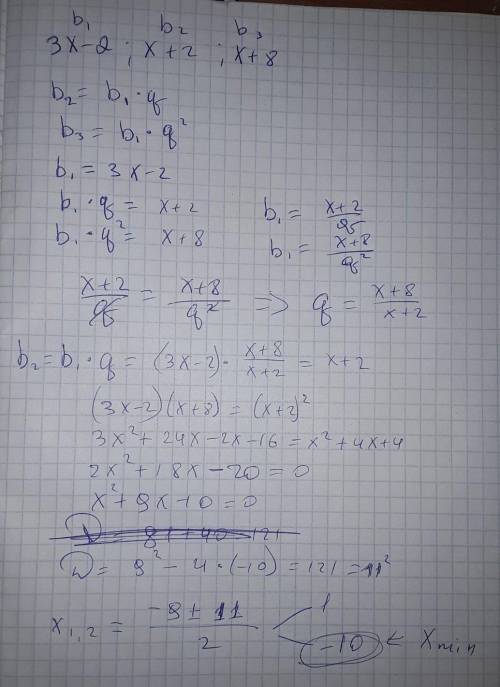 b₁ b₂ b₃
3x-2 ; x+2 ; x+8
b₂ = b₁ · q
b₃ = b₁ · q²
b₁ = 3x-2
b₁ · q = x+2 b₁ = (x+2)/q
b₁ · q² = x+8 b₁ = (x+8)/q²
(x+2)/q = (x+8)/q² => q = (x+8)/(x+2)
b₂ = b₁ · q = (3x-2) · (x+8)/(x+2) = x+2
(3x-2)(x+8) = (x+2)²
3x² + 24x - 2x - 16 = x² + 4x + 4
2x² + 18x - 20 = 0
x² + 9x - 10 = 0
D = 81 + 40 = 121
D = 9² - 4 · (-10) = 121 = 11²
x₁,₂ = (-9 ± 11)/2 1
-10 ← x min